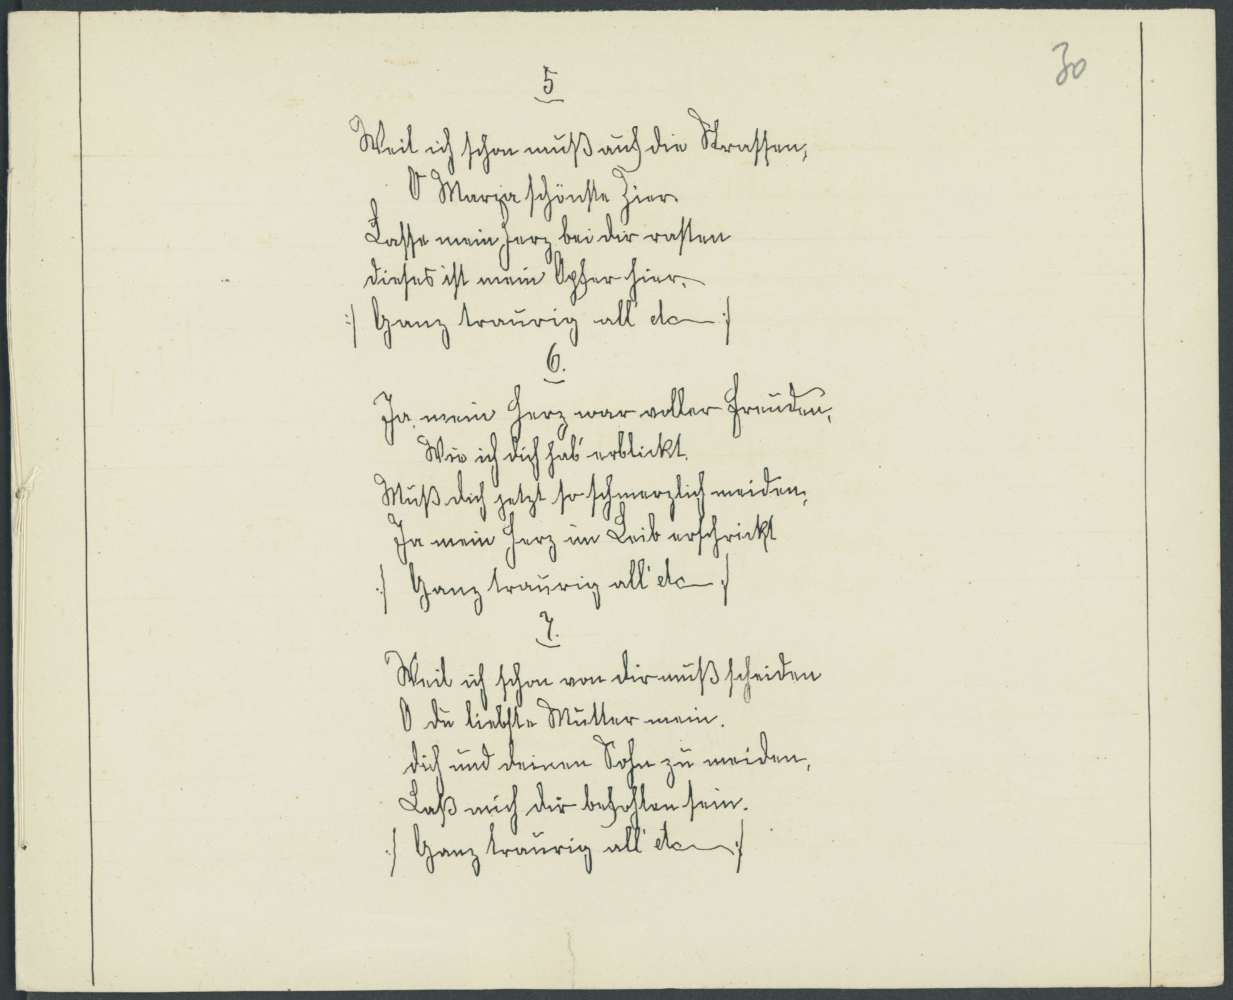 30
5
Weil ich schon muß auf die Strassen,
O Maria schönste Zier
Lasse mein Herz bei dir rasten
dieses ist mein Opfer hier.
:| Ganz traurig all' etc :|
6.
Ja mein Herz war voller Freuden,
Wie ich dich hab' erblickt.
Muß dich jetzt so schmerzlich meiden,
Ja mein Herz im Leib erschrickt
:| Ganz traurig all' etc :|
7.
Weil ich schon von dir muß scheiden
O du liebste Mutter mein.
dich und deinen Sohn zu meiden,
Laß mich dir befohlen sein.
:| Ganz traurig all' etc :|